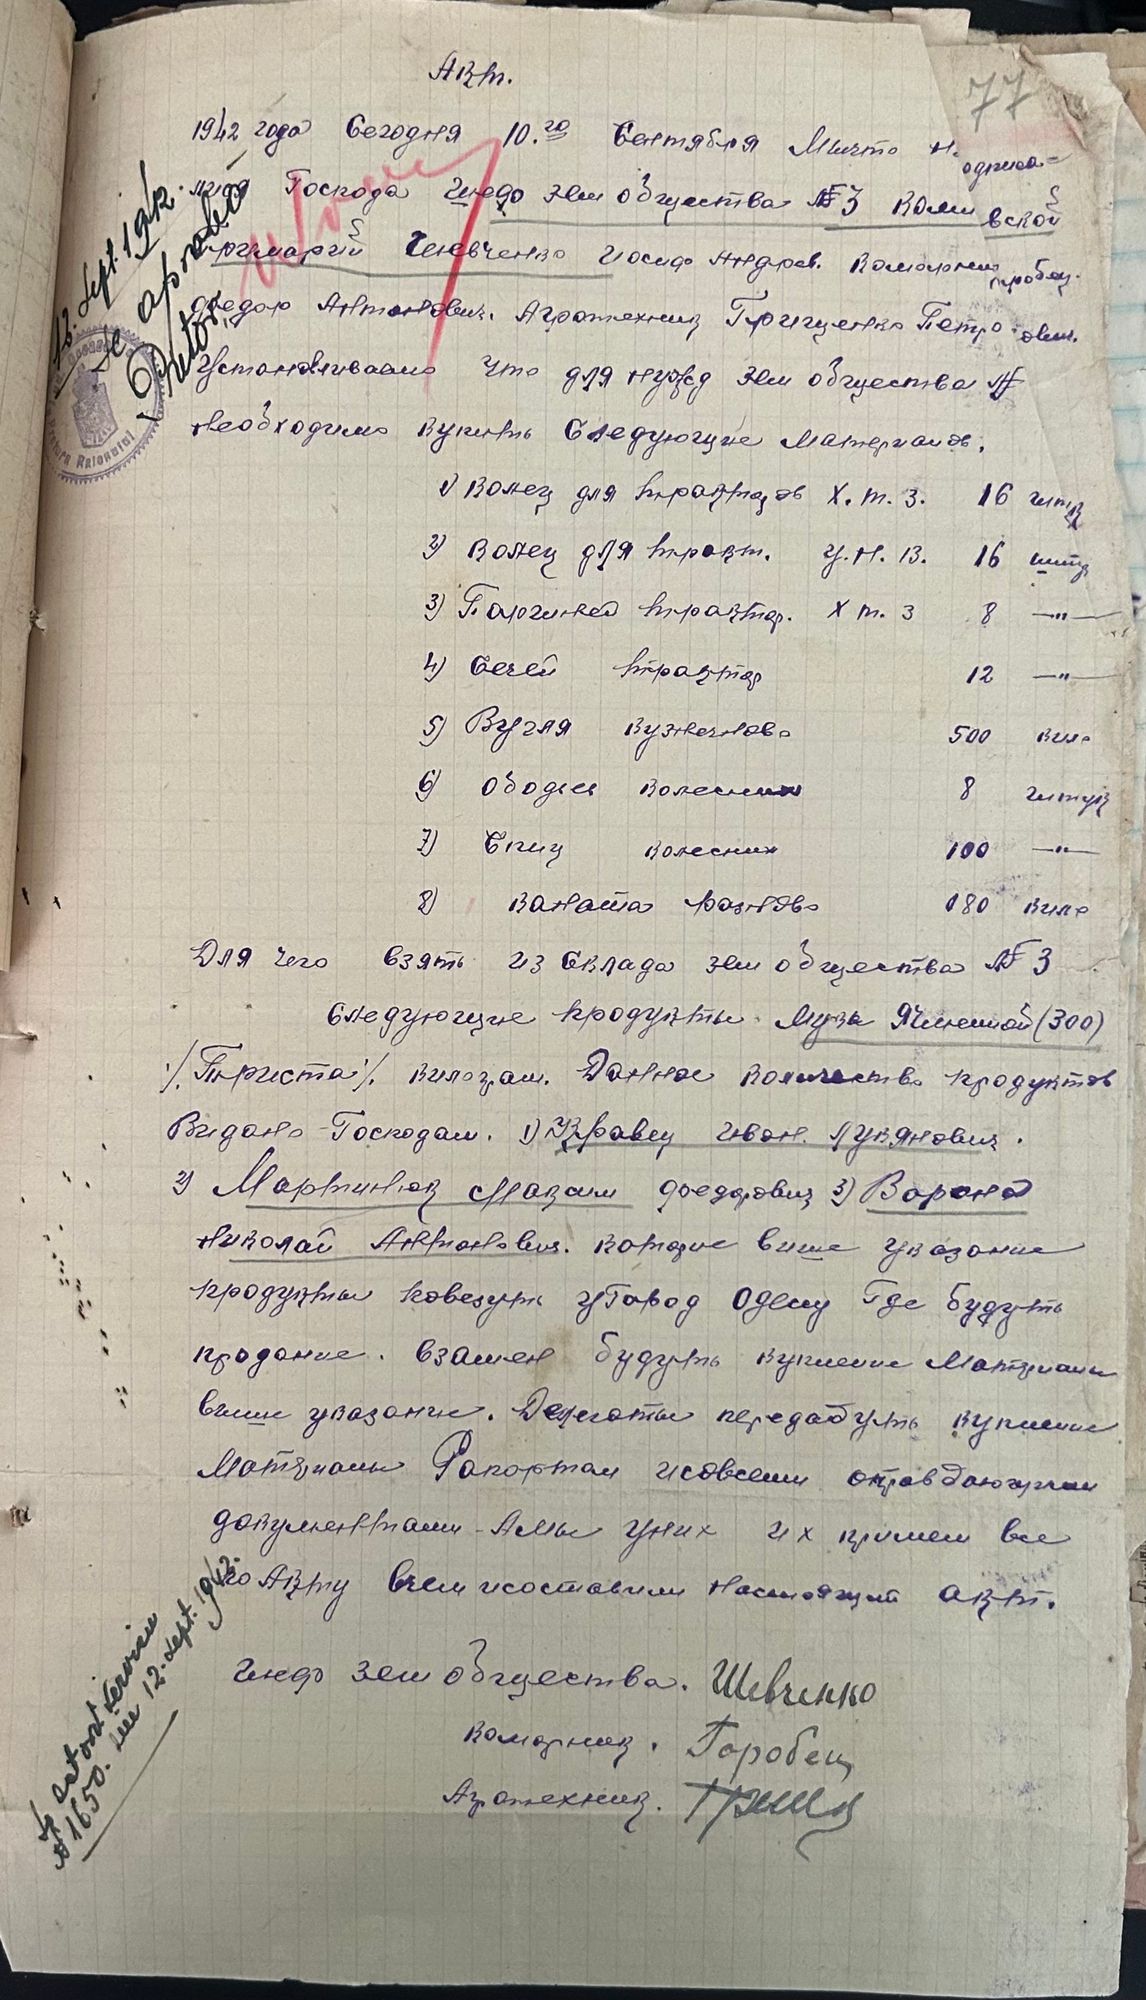 77
Акт.
1942 года Сегодня 10.го Сентября Мы что н.
одписа=
лися Господа Шефо зем общества № 3 Коми
вской
примарий Шевченко Иосиф Андрев. Коморник
Горобец.
Федор Антонович. Агротехник Грищенко Петро
ович.
Установливаемо что для нужд зем общества №
необходимо купить Следующие материалов.
1) Колец для трактаров Х.т.з. 16 штук
2) Колец для тракт. У.Н.В. 16 штук
3) Паршней трактор. Х т. з 8 —"—
4) Свечей трактор 12 —"—
5) Вугля кузнечново 500 кило
6) Ободки колесних 8 штук
7) Спиц колесних 100 —"—
8) Каната разново 180 кило
Для чего взять из Склада зем общества № 3
Следующие продукты Мука Ячменной (300)
/.Триста/. килограм. Данное количество продуктов
Видано Господам. 1) Кравец Иван. Лукянович.
2) Мартинюк Максим Федорович 3) Ворона
Николай Антонович. которие више указание
продукты повезуть у город Одессу Где будуть
продание. взамен будуть купление Материалы
више указание. Делегаты передадуть купление
Материалы Рапортам и совсеми оправдающими
документами - А мы у них их примем все
по Акту в чем и составили настоящий акт.
Шеф зем общества. Шевченко
Коморник. Горобец
Агротехник. Грищ
13. Sept. 1942.
Se aprobă
Pretor,
Pretura Raionului
S'a achitat
№ 1650. din 12. Sept. 1942.